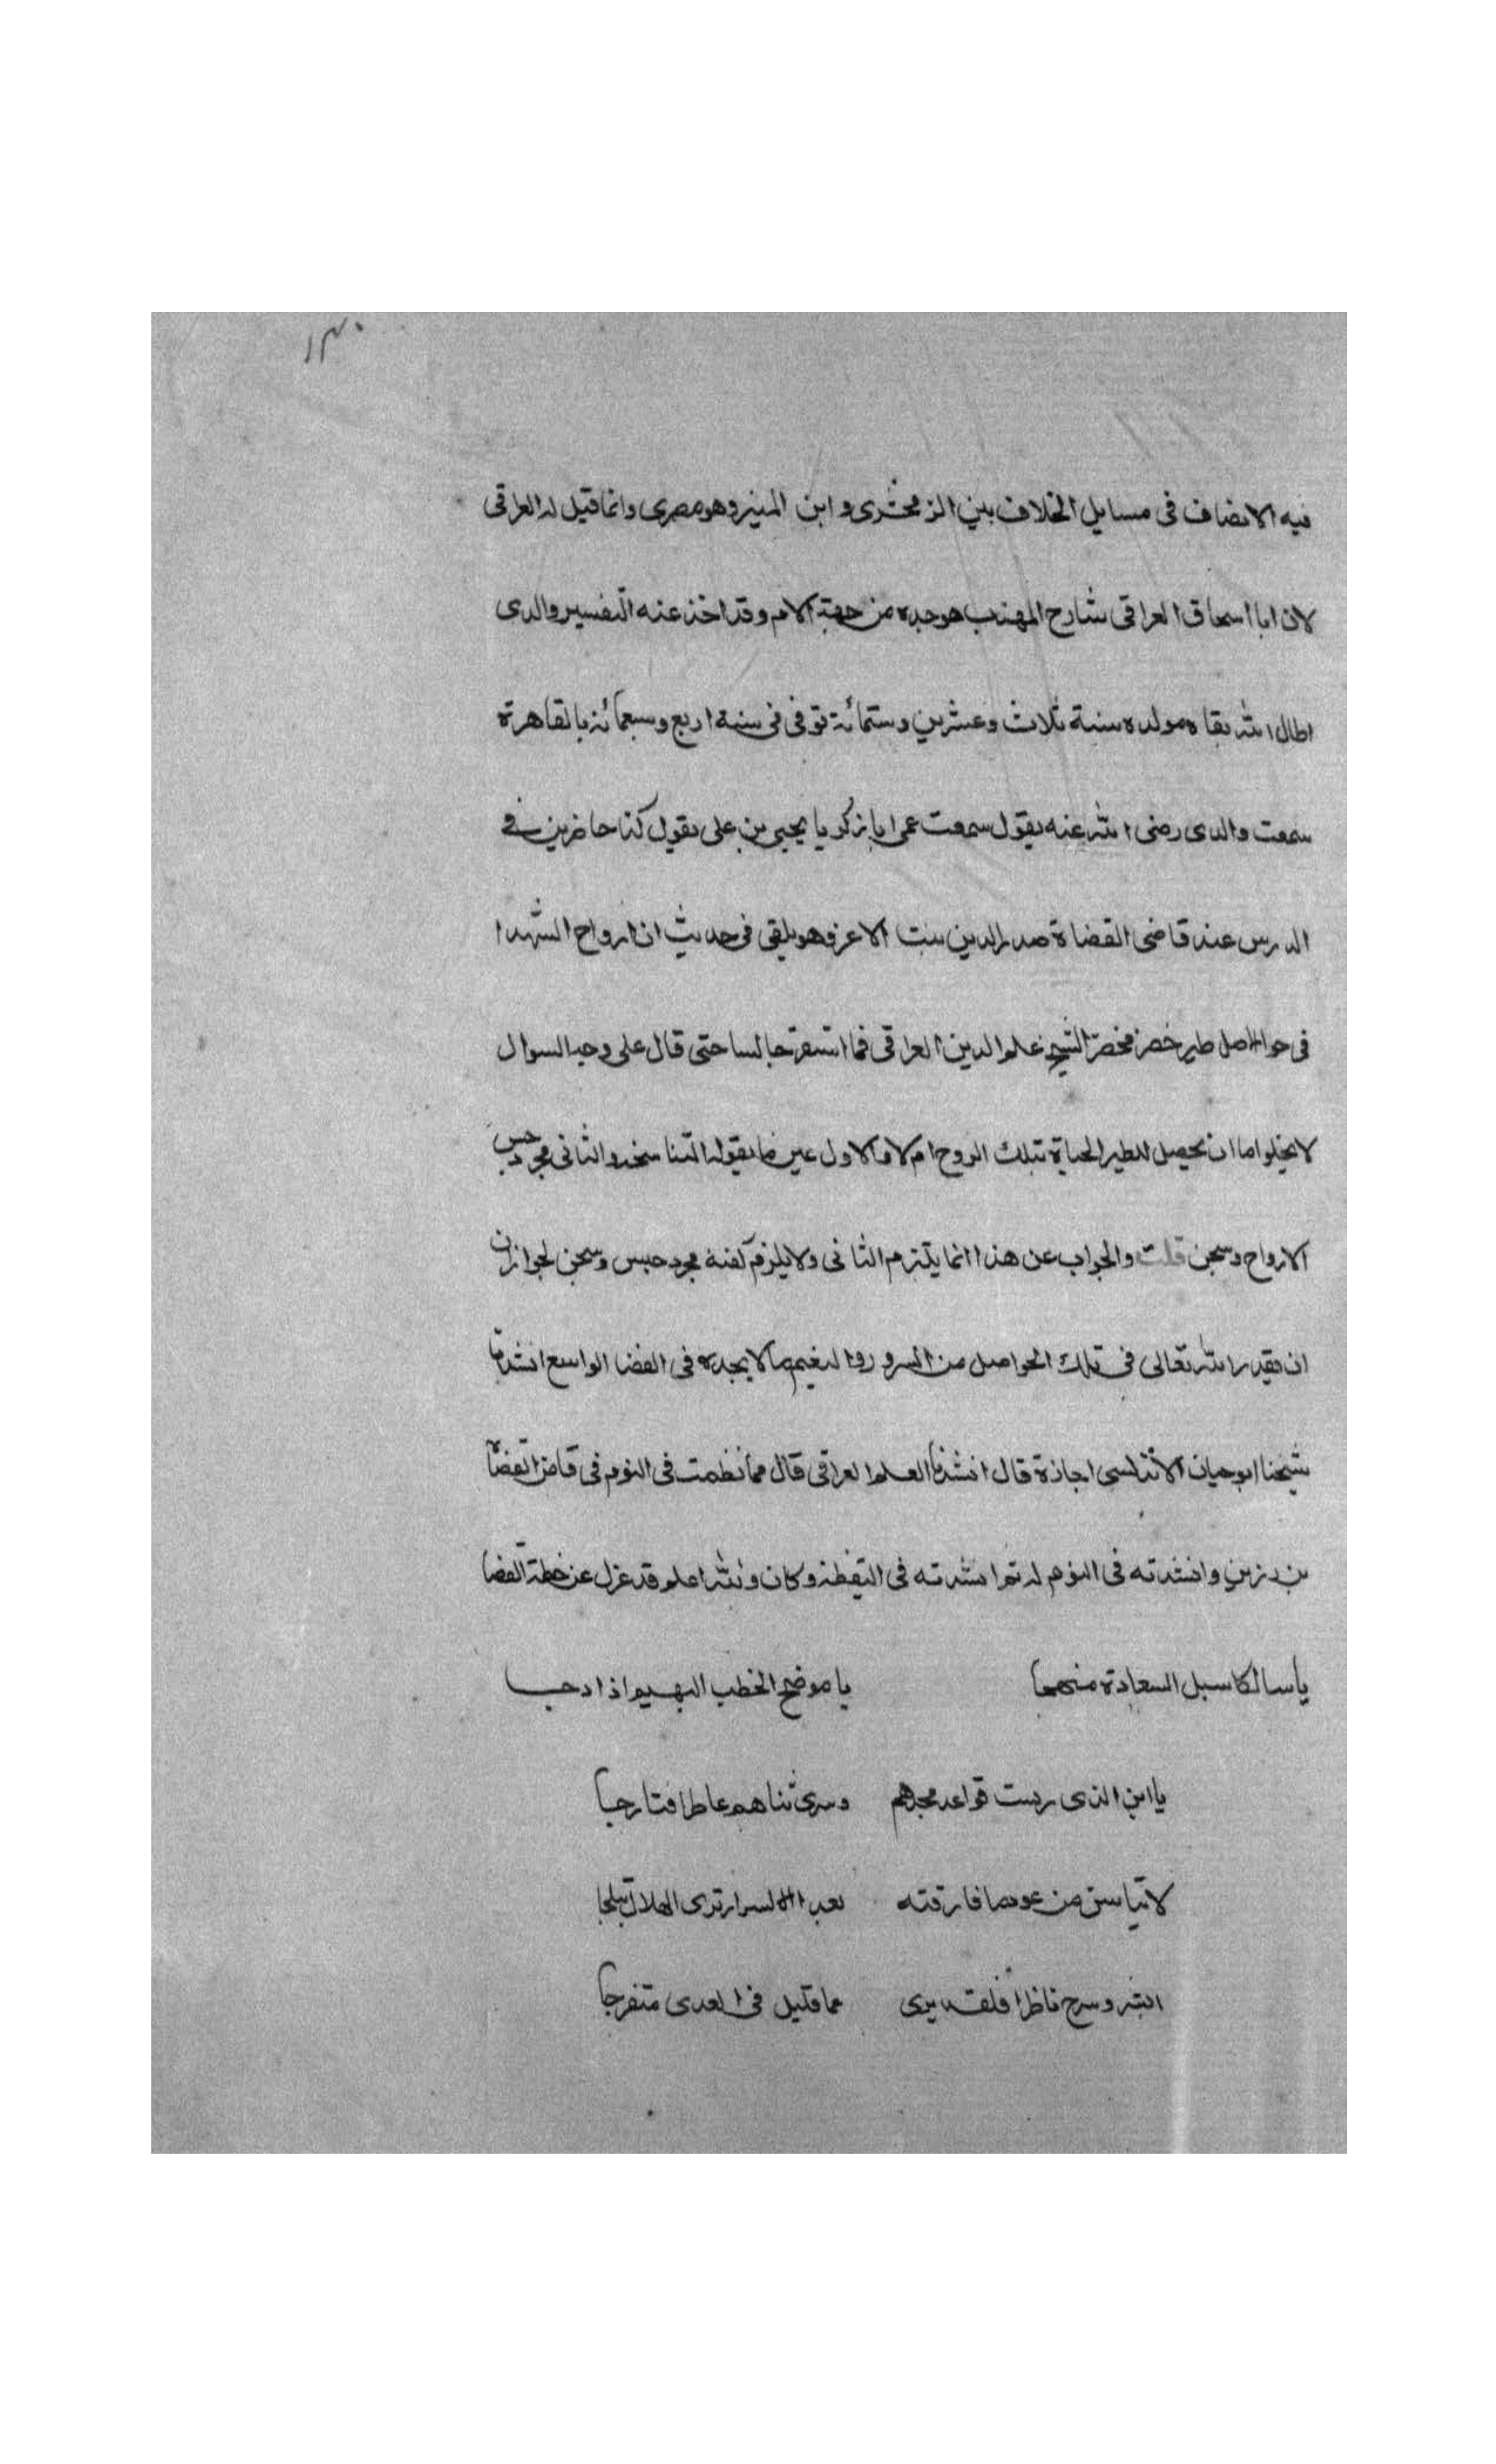 ١٣٠
فيه الانصاف فى مسايل الخلاف بين الزمخشرى و ابن المنير وهو مصرى وانما قيل له العراقى
لان ابا اسحاق العراقى شارح المهذب هو جده من جهة الام وقد اخذ عنه التفسير والدى
اطال الله بقاه مولده سنة ثلاث وعشرين وستمائة توفى فى سنة اربع وسبعمائة بالقاهرة
سمعت والدى رضى الله عنه يقول سمعت عمى ابا زكريا يحيى بن على يقول كنا حاضرين فى
الدرس عند قاضى القضاة صدر الدين بنت الاعز وهو يلقى فى حديث ان ارواح الشهدا
فى حواصل طير خضر فحضر الشيخ علم الدين العراقى فما استقر جالسا حتى قال على وجه السوال
لا يخلو اما ان يحصل للطير الحياة بتلك الروح ام لا والاول عين ما يقوله التناسخه والثانى مجرد حبس
الارواح وسجن قلت والجواب عن هذا انما يلتزم الثانى ولا يلزم كفنه مجرد حبس وسجن لجواز ان
ان يقدر الله تعالى فى تلك الحواصل من السرور والنغيم ما لا يجده فى الفضا الواسع انشدنا
شيخنا ابو حيان الاندلسى اجازة قال انشدنا العلم العراقى قال مما نظمت فى النوم فى قاضى القضاة
بن رزين وانشدته فى النوم له ثم انشدته فى اليقظة وكان والله اعلم قد عزل عن خطة القضا
يا سالكا سبل السعادة منهجا يا موضح الخطب البهيم اذا دجا
يا ابن الذى رست قواعد مجدهم وسرى ثناهم عاطرا فتارجا
لا تياسن من عود ما فارقته بعد السرار ترى الهلال تبلجا
ابشر وسرح ناظرا فلقد يرى عما قليل فى العدى متفرجا